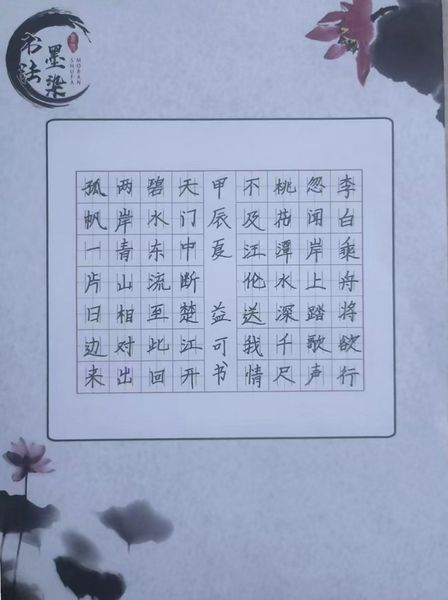 墨染
书法
MORAN
SHUFA
李白乘舟将欲行
忽闻岸上踏歌声
桃花潭水深千尺
不及汪伦送我情
甲辰夏 益可书
天门中断楚江开
碧水东流至此回
两岸青山相对出
孤帆一片日边来